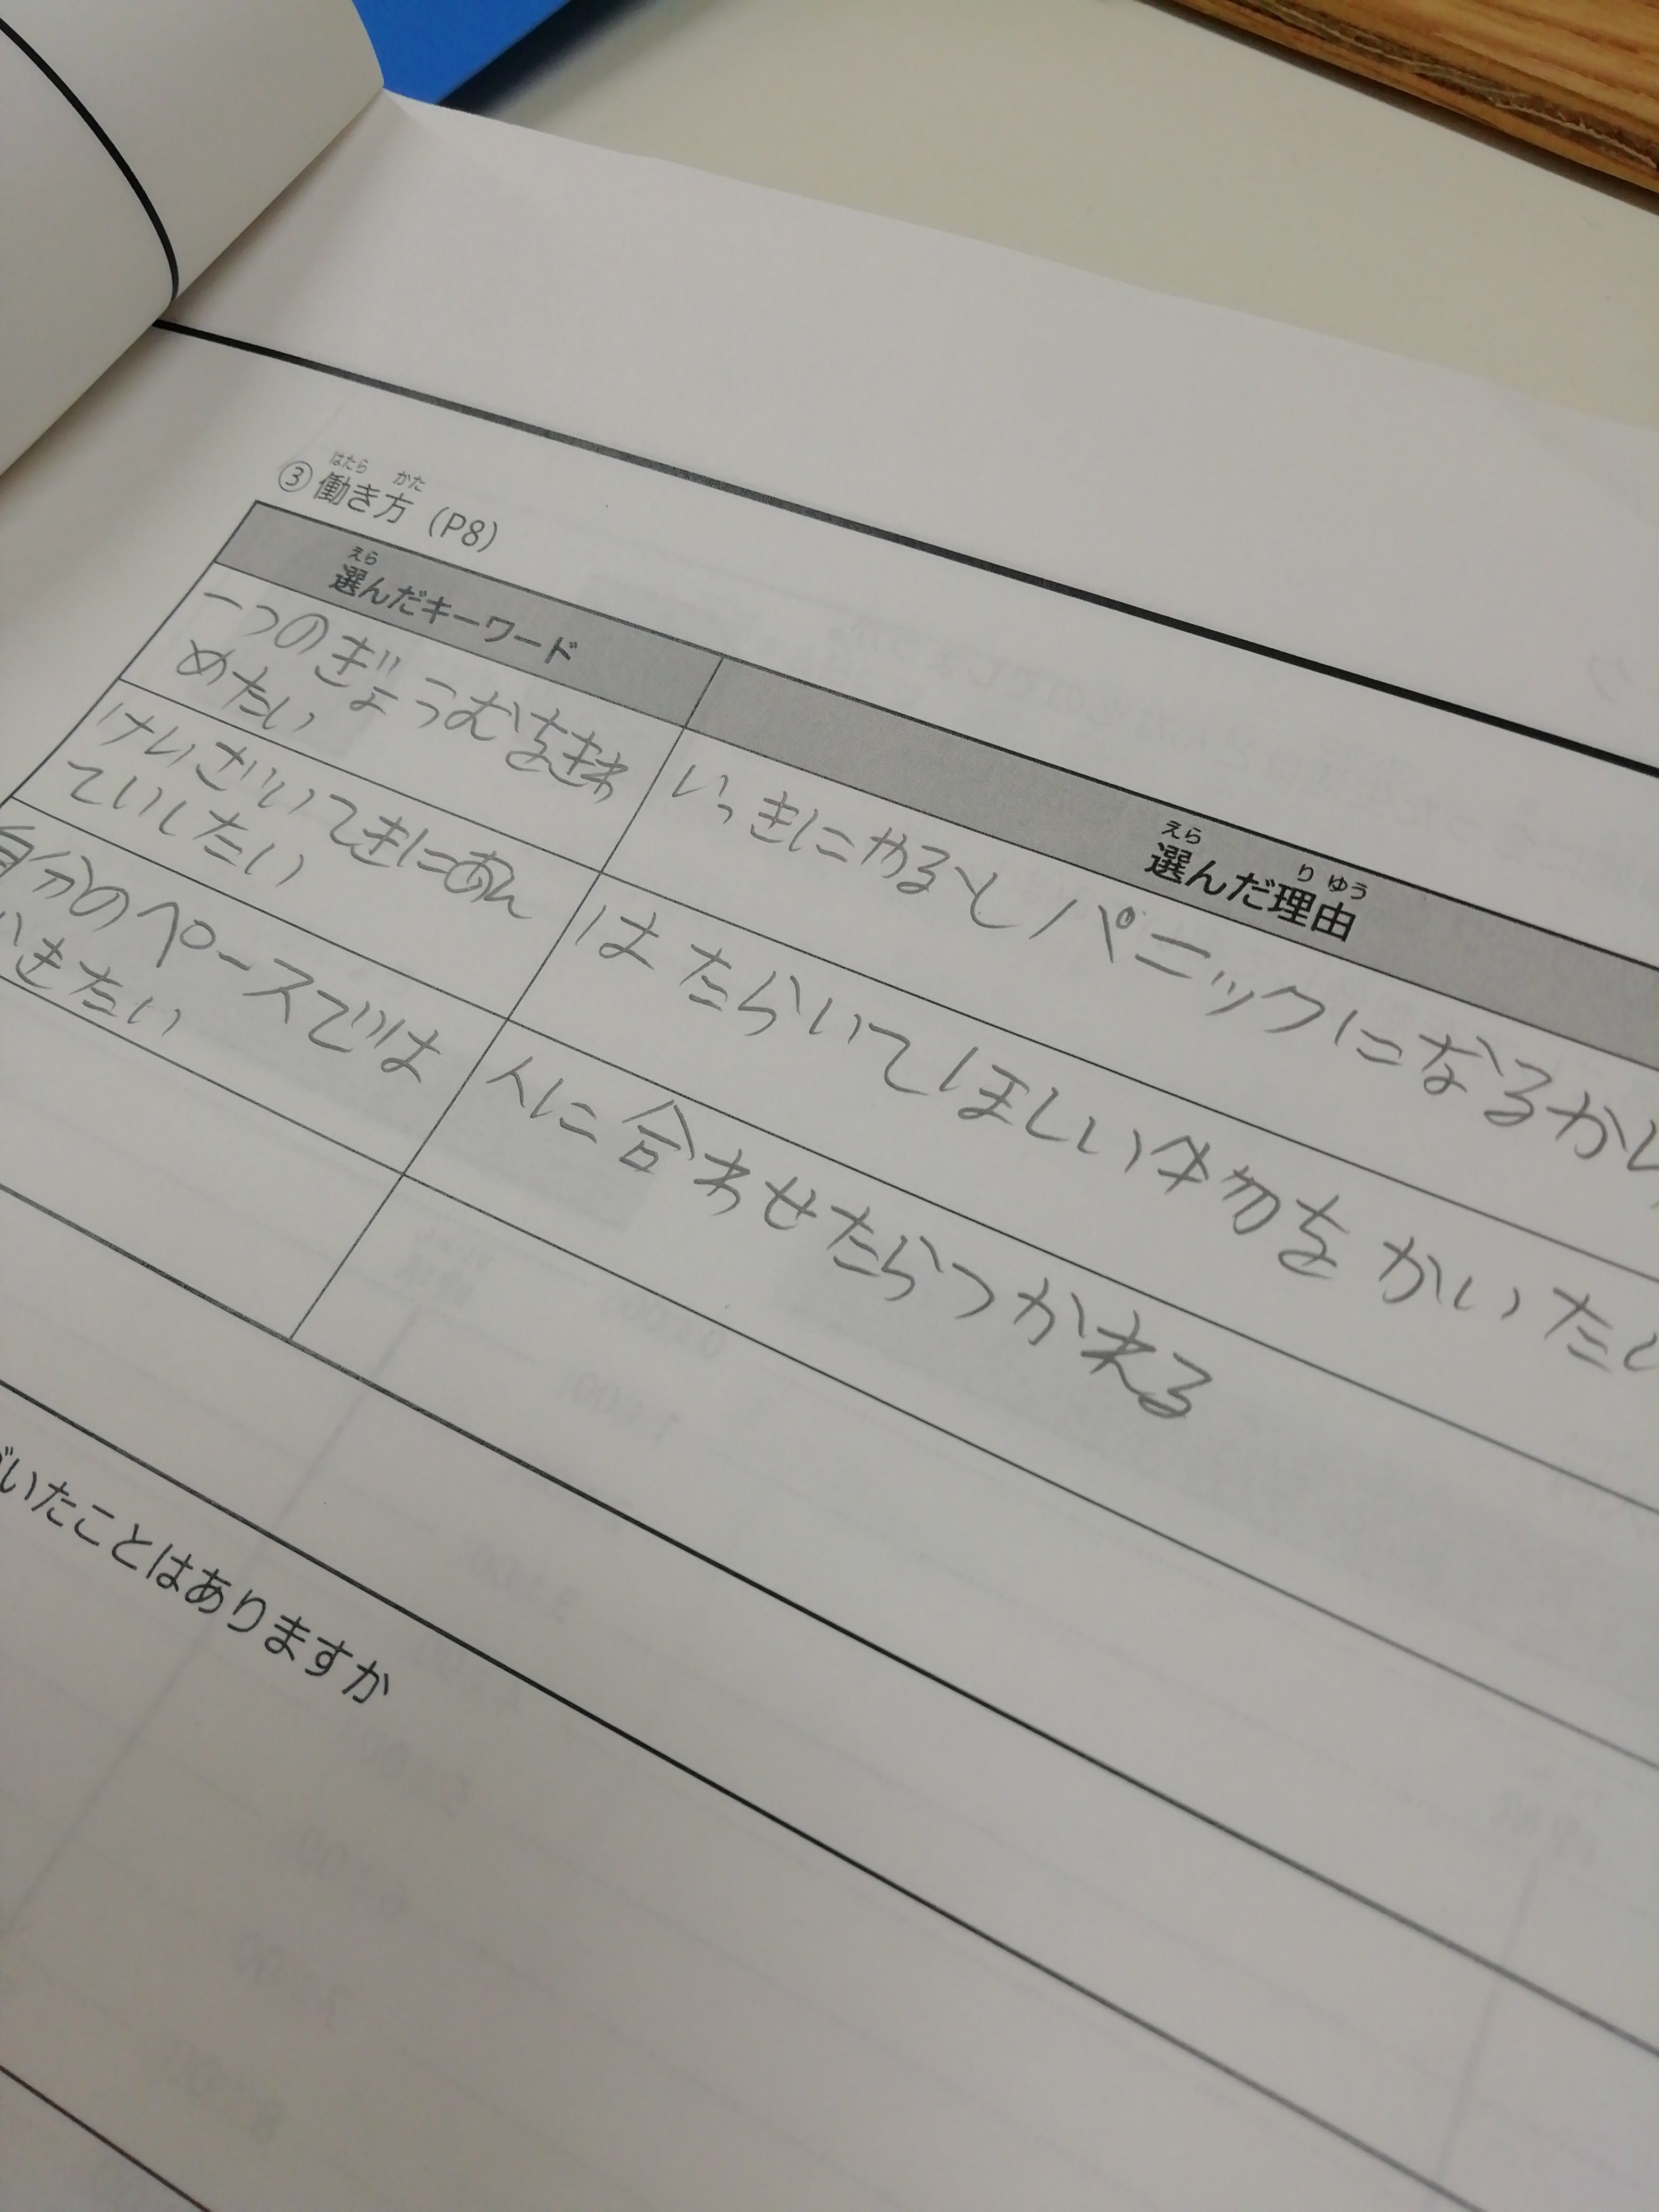 ③働き方（P8）
選んだキーワード
選んだ理由
一つのぎょうむをきわ
めたい
いっきにやるとパニックになるから
けいざいてきにあん
ていしたい
はたらいてほしい物をかいたい
自分のペースでは
きたい
人に合わせたらつかれる
いたことはありますか